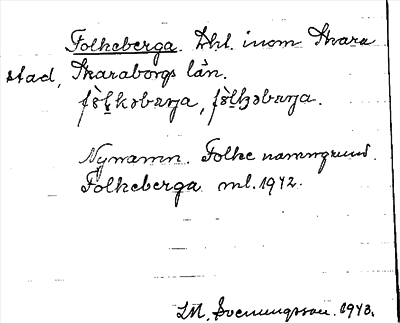 Folkeberga. Lht. inom Skara
stad, Skaraborgs län.
fòl̠kəbærja, fòl̠kəbærja.
Nynamn. Folke namngrund.
Folkeberga ml. 1942.
LM. Svenungsson. 1943.